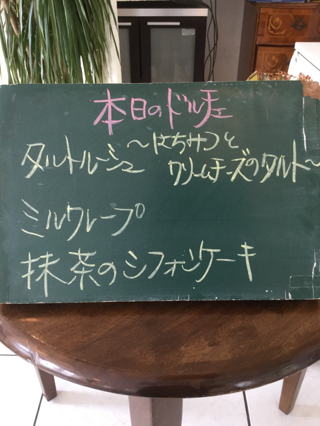 本日のドルチェ
タルトルーシュ ～はちみつと
クリームチーズのタルト～
ミルクレープ
抹茶のシフォンケーキ